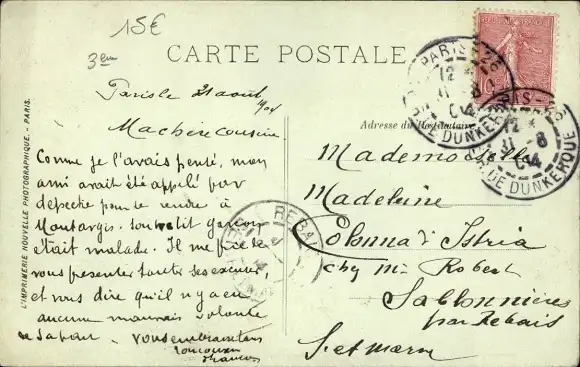 15€
3em
CARTE POSTALE
Paris le 31 août
1904
Ma chère cousine
Comme je l'avais pensé, mon
ami avait été appelé par
dépêche pour se rendre à
Montargis. son petit garçon
était malade. Il me prie de
vous presenter toutes ses excuses,
et vous dire qu'il n'y a eu
aucune mauvaise volonté
de sa part. Vous embrassant
Adresse du Destinataire
Mademoiselle
Madeleine
Colonna d'Istria
chez Mr Robert
Sablonnières
par Rebais
S. et Marne
PARIS
12
04
R. DE DUNKERQUE
PARIS
12
8
04
R. DE DUNKERQUE
REBAIS
L'IMPRIMERIE NOUVELLE PHOTOGRAPHIQUE. - PARIS.